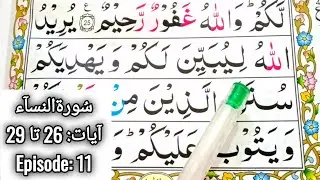 لَّكُمْ ۗ وَاللّٰهُ غَفُوْرٌ رَّحِيْمٌ ﴿25﴾ يُرِيْدُ
اللّٰهُ لِيُبَيِّنَ لَكُمْ وَيَهْدِيَكُمْ
سُنَنَ الَّذِيْنَ مِنْ
وَيَتُوْبَ عَلَيْكُمْ
سُورةالنسآء
آیات: 26 تا 29
Episode: 11